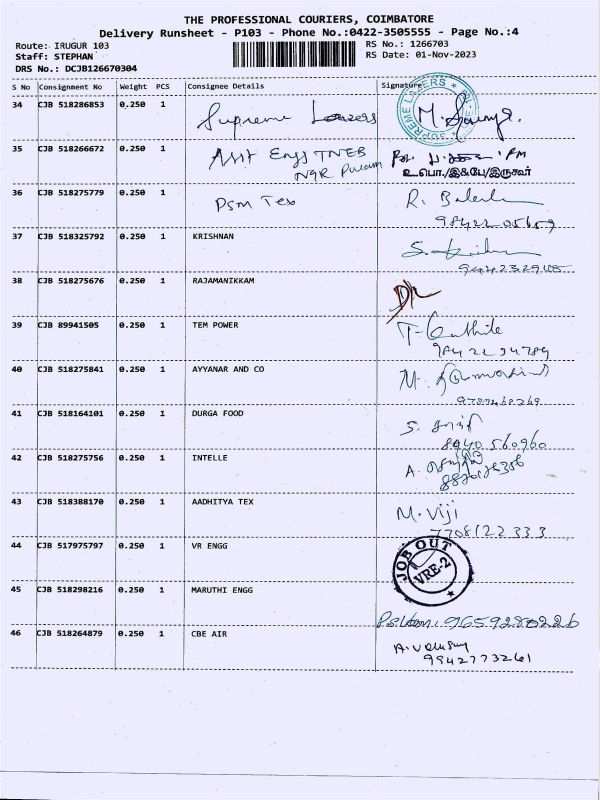 THE PROFESSIONAL COURIERS, COIMBATORE
Delivery Runsheet - P103 - Phone No.:0422-3505555 - Page No.:4
Route: IRUGUR 103 RS No.: 1266703
Staff: STEPHAN RS Date: 01-Nov-2023
DRS No.: DCJB126670304
S No Consignment No Weight PCS Consignee Details Signature
34 CJB 518286853 0.250 1 Supreme Lazers M.
SUPREME LAZERS
35 CJB 518266672 0.250 1 Asst Engg TNEB
NGR Puram
உ.பொ./இ&பே/இருகூர்
36 CJB 518275779 0.250 1 PSM Tex R.
98422 05659
37 CJB 518325792 0.250 1 KRISHNAN S.
38 CJB 518275676 0.250 1 RAJAMANIKKAM
39 CJB 89941505 0.250 1 TEM POWER T-
40 CJB 518275841 0.250 1 AYYANAR AND CO M.
41 CJB 518164101 0.250 1 DURGA FOOD S.
8940 560960
42 CJB 518275756 0.250 1 INTELLE A.
43 CJB 518388170 0.250 1 AADHITYA TEX M. Viji
7708122333
44 CJB 517975797 0.250 1 VR ENGG
JOB OUT
VRE-2
45 CJB 518298216 0.250 1 MARUTHI ENGG
9659280226
46 CJB 518264879 0.250 1 CBE AIR
9942773261